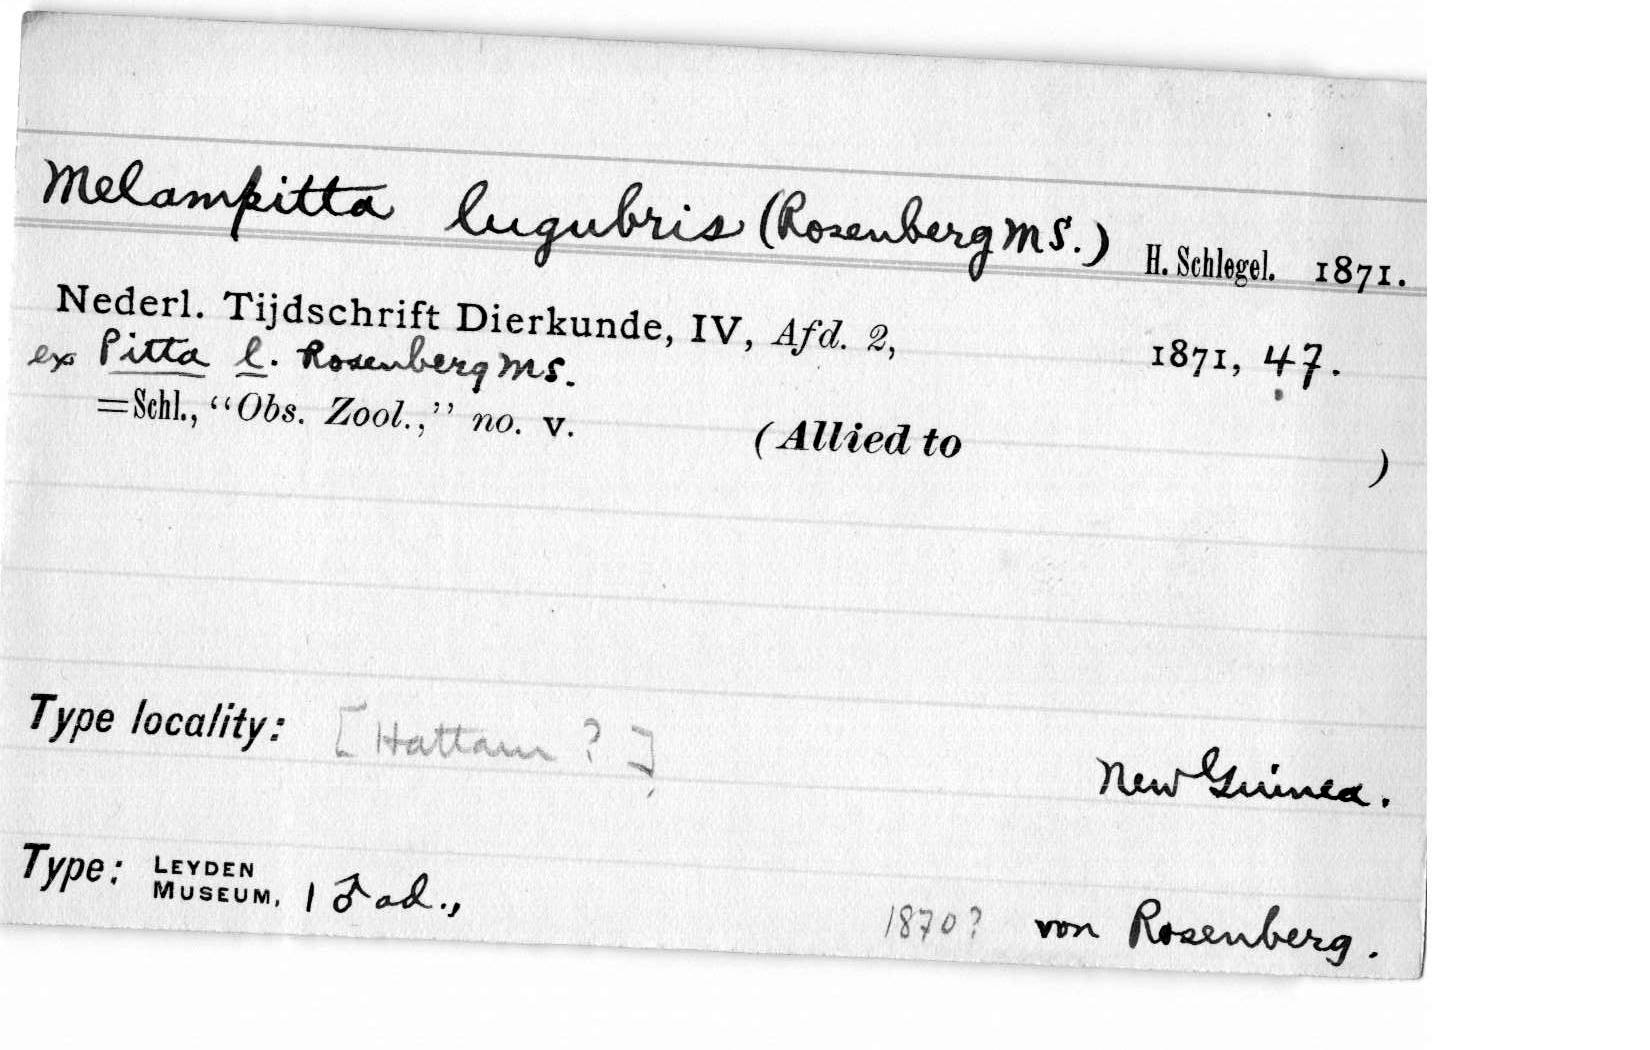 Melampitta lugubris (Rosenberg MS.) H. Schlegel. 1871.
Nederl. Tijdschrift Dierkunde, IV, Afd. 2, 1871, 47.
ex Pitta l. Rosenberg MS.
=Schl., “Obs. Zool.,” no. v. (Allied to )
Type locality: [Hattam ?] New Guinea.
Type: LEYDEN MUSEUM, 1 ♂ ad., 1870? von Rosenberg.